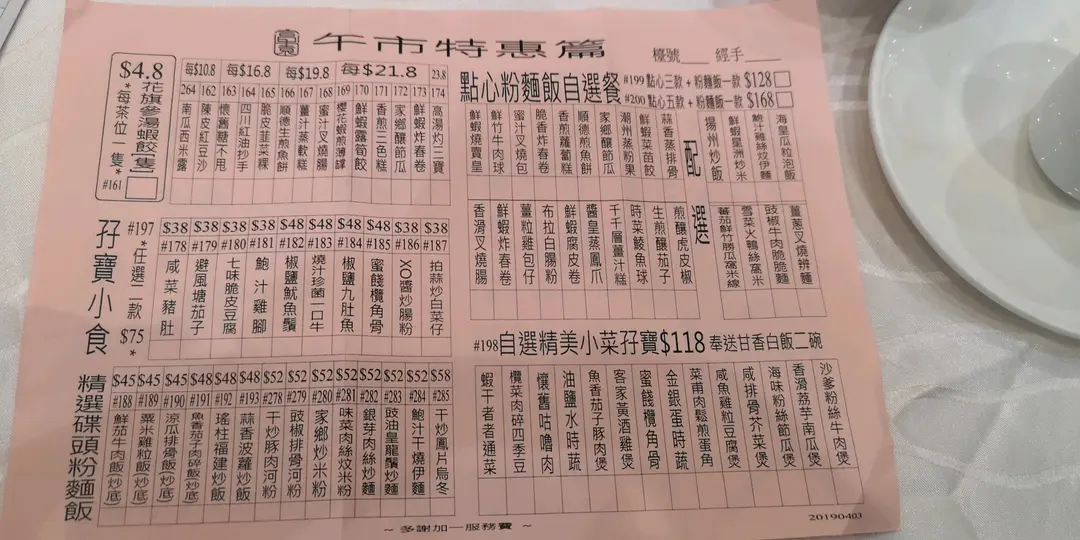 午市特惠篇
檯號___ 經手___
$4.8
花旗參湯蝦餃(一隻)
*每茶位一隻*
#161
每$10.8
每$16.8
每$19.8
每$21.8
23.8
264 南瓜西米露
162 陳皮紅豆沙
163 懷舊糖不甩
164 四川紅油抄手
165 脆皮韮菜粿
166 順德生煎魚餅
167 薑汁蒸軟糕
168 蜜汁叉燒腸
169 櫻花蝦煎薄罉
170 鮮蝦露筍餃
171 香煎三色糕
172 家鄉釀節瓜
173 鮮蝦炸春卷
174 高湯灼三寶
點心粉麵飯自選餐
#199 點心三款 + 粉麵飯一款 $128
#200 點心五款 + 粉麵飯一款 $168
鮮蝦燒賣皇
鮮竹牛肉球
蜜汁叉燒包
脆香炸春卷
香煎蘿蔔糕
順德煎魚餅
家鄉釀節瓜
潮州蒸粉果
鮮蝦菜苗餃
蒜香蒸排骨
配選
揚州炒飯
鮮蝦星洲炒米
鮑汁雞絲炆伊麵
海皇瓜粒泡飯
香滑叉燒腸
鮮蝦炸春卷
薑粒雞包仔
布拉白腸粉
鮮蝦腐皮卷
醬皇蒸鳳爪
千層薑汁糕
時菜鯪魚球
生煎釀茄子
煎釀虎皮椒
蕃茄鮮竹勝瓜窩米線
雪菜火鴨絲窩米
豉椒牛肉脆脆麵
薑蔥叉燒辨麵
孖寶小食
#197
*任選二款
$75
*
$38 #178 咸菜豬肚
$38 #179 避風塘茄子
$38 #180 七味脆皮豆腐
$38 #181 鮑汁雞腳
$48 #182 椒鹽魷魚鬚
$48 #183 燒汁珍菌一口牛
$48 #184 椒鹽九肚魚
$48 #185 蜜餞欖角骨
$38 #186 XO醬炒腸粉
$38 #187 拍蒜炒白菜仔
#198 自選精美小菜孖寶$118 奉送甘香白飯二碗
蝦干者者通菜
欖菜肉碎四季豆
懷舊咕嚕肉
油鹽水時蔬
魚香茄子豚肉煲
客家黃酒雞煲
蜜餞欖角骨
金銀蛋時蔬
菜甫肉鬆煎蛋角
咸魚雞粒豆腐煲
咸排骨芥菜煲
海味粉絲節瓜煲
香滑荔芋南瓜煲
沙爹粉絲牛肉煲
精選碟頭粉麵飯
$45 #188 鮮茄牛肉飯(炒底)
$45 #189 粟米雞粒飯(炒底)
$45 #190 涼瓜排骨飯(炒底)
$48 #191 魚香茄子肉碎飯(炒底)
$48 #192 瑤柱福建炒飯
$48 #193 蒜香波蘿炒飯
$52 #278 干炒豚肉河粉
$52 #279 豉椒排骨河粉
$52 #280 家鄉炒米粉
$52 #281 味菜肉絲炆米粉
$52 #282 銀芽肉絲炒麵
$52 #283 豉油皇龍鬚炒麵
$52 #284 鮑汁干燒伊麵
$58 #285 干炒鳳片烏冬
~ 多謝加一服務費 ~
20190403